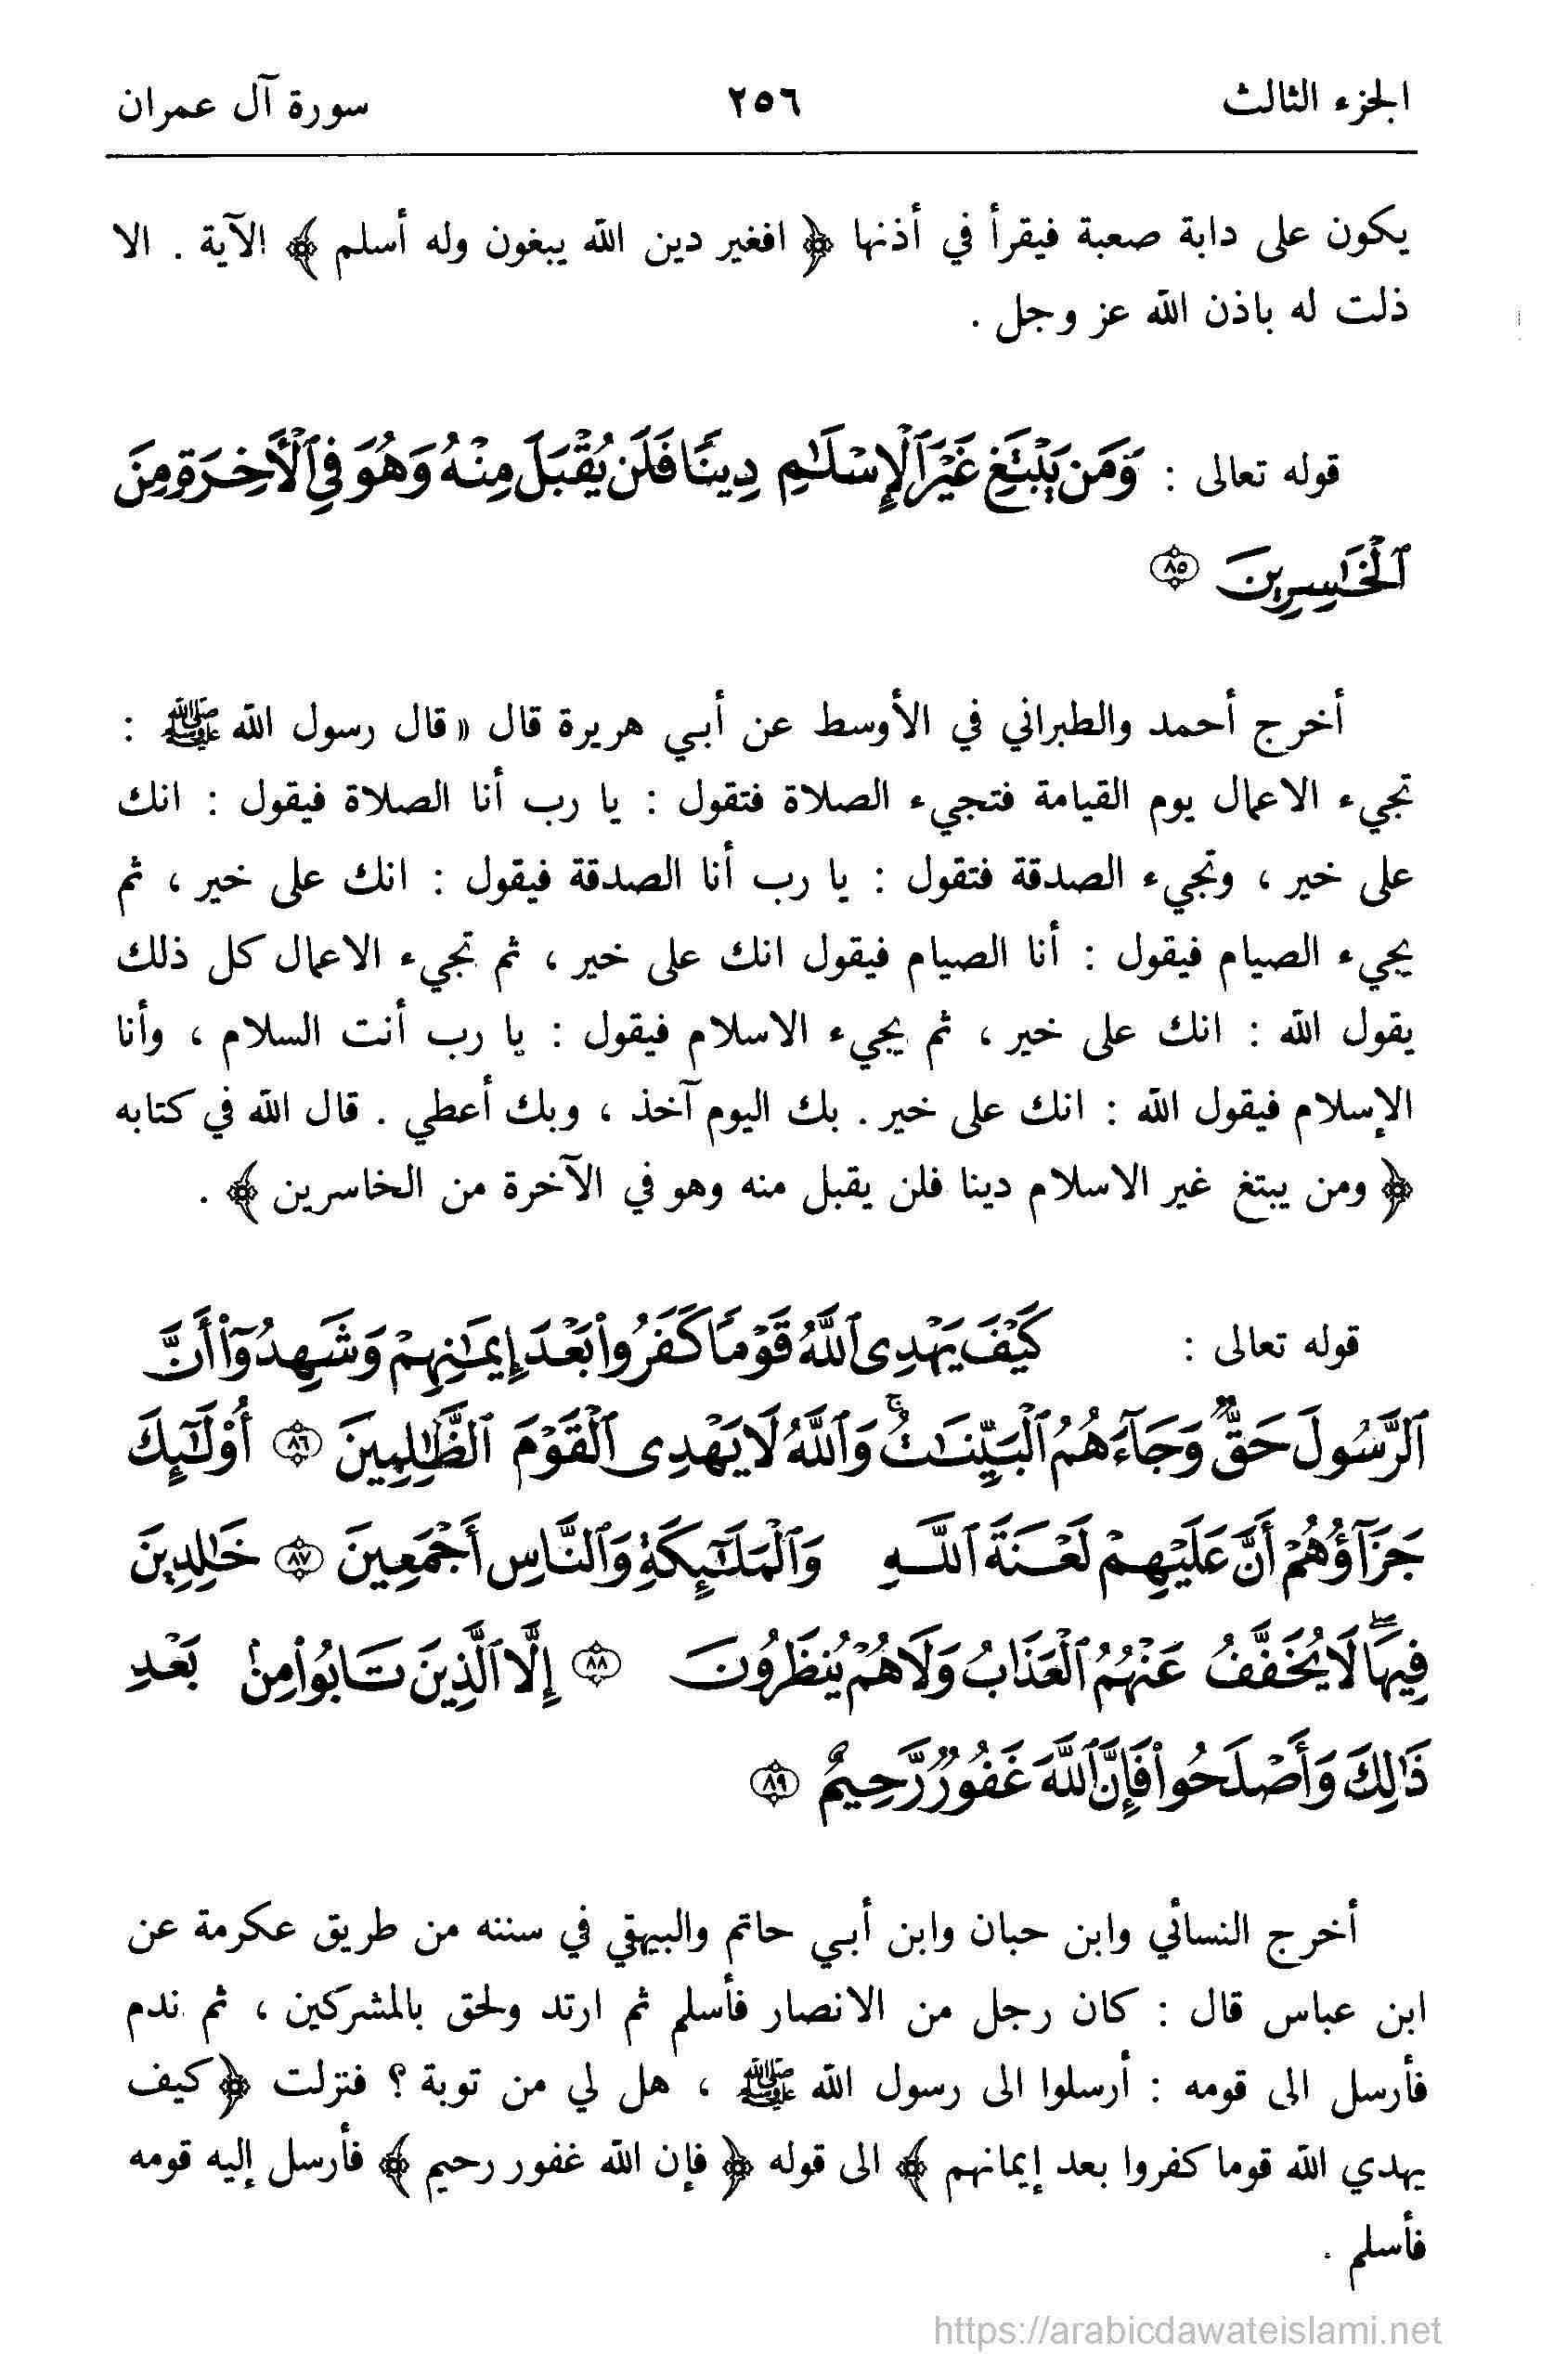 الجزء الثالث ٢٥٦ سورة آل عمران
يكون على دابة صعبة فيقرأ في أذنها ﴿ افغير دين الله يبغون وله أسلم ﴾ الآية . الا
ذلت له باذن الله عز وجل .
قوله تعالى : وَمَن يَبْتَغِ غَيْرَ ٱلْإِسْلَٰمِ دِينًا فَلَن يُقْبَلَ مِنْهُ وَهُوَ فِي ٱلْأٓخِرَةِ مِنَ
ٱلْخَٰسِرِينَ ٨٥
أخرج أحمد والطبراني في الأوسط عن أبي هريرة قال « قال رسول الله ﷺ :
تجيء الاعمال يوم القيامة فتجيء الصلاة فتقول : يا رب أنا الصلاة فيقول : انك
على خير ، وتجيء الصدقة فتقول : يا رب أنا الصدقة فيقول : انك على خير ، ثم
يجيء الصيام فيقول : أنا الصيام فيقول انك على خير ، ثم تجيء الاعمال كل ذلك
يقول الله : انك على خير ، ثم يجيء الاسلام فيقول : يا رب أنت السلام ، وأنا
الإسلام فيقول الله : انك على خير . بك اليوم آخذ ، وبك أعطي . قال الله في كتابه
﴿ ومن يبتغ غير الاسلام دينا فلن يقبل منه وهو في الآخرة من الخاسرين ﴾ .
قوله تعالى : كَيْفَ يَهْدِى ٱللَّهُ قَوْمًا كَفَرُوا۟ بَعْدَ إِيمَٰنِهِمْ وَشَهِدُوٓا۟ أَنَّ
ٱلرَّسُولَ حَقٌّ وَجَآءَهُمُ ٱلْبَيِّنَٰتُ ۚ وَٱللَّهُ لَا يَهْدِى ٱلْقَوْمَ ٱلظَّٰلِمِينَ ٨٦ أُو۟لَٰٓئِكَ
جَزَآؤُهُمْ أَنَّ عَلَيْهِمْ لَعْنَةَ ٱللَّهِ وَٱلْمَلَٰٓئِكَةِ وَٱلنَّاسِ أَجْمَعِينَ ٨٧ خَٰلِدِينَ
فِيهَا لَا يُخَفَّفُ عَنْهُمُ ٱلْعَذَابُ وَلَا هُمْ يُنظَرُونَ ٨٨ إِلَّا ٱلَّذِينَ تَابُوا۟ مِنۢ بَعْدِ
ذَٰلِكَ وَأَصْلَحُوا۟ فَإِنَّ ٱللَّهَ غَفُورٌ رَّحِيمٌ ٨٩
أخرج النسائي وابن حبان وابن أبي حاتم والبيهقي في سننه من طريق عكرمة عن
ابن عباس قال : كان رجل من الانصار فأسلم ثم ارتد ولحق بالمشركين ، ثم ندم
فأرسل الى قومه : أرسلوا الى رسول الله ﷺ ، هل لي من توبة ؟ فنزلت ﴿ كيف
يهدي الله قوما كفروا بعد إيمانهم ﴾ الى قوله ﴿ فإن الله غفور رحيم ﴾ فأرسل إليه قومه
فأسلم .
https://arabicdawateislami.net